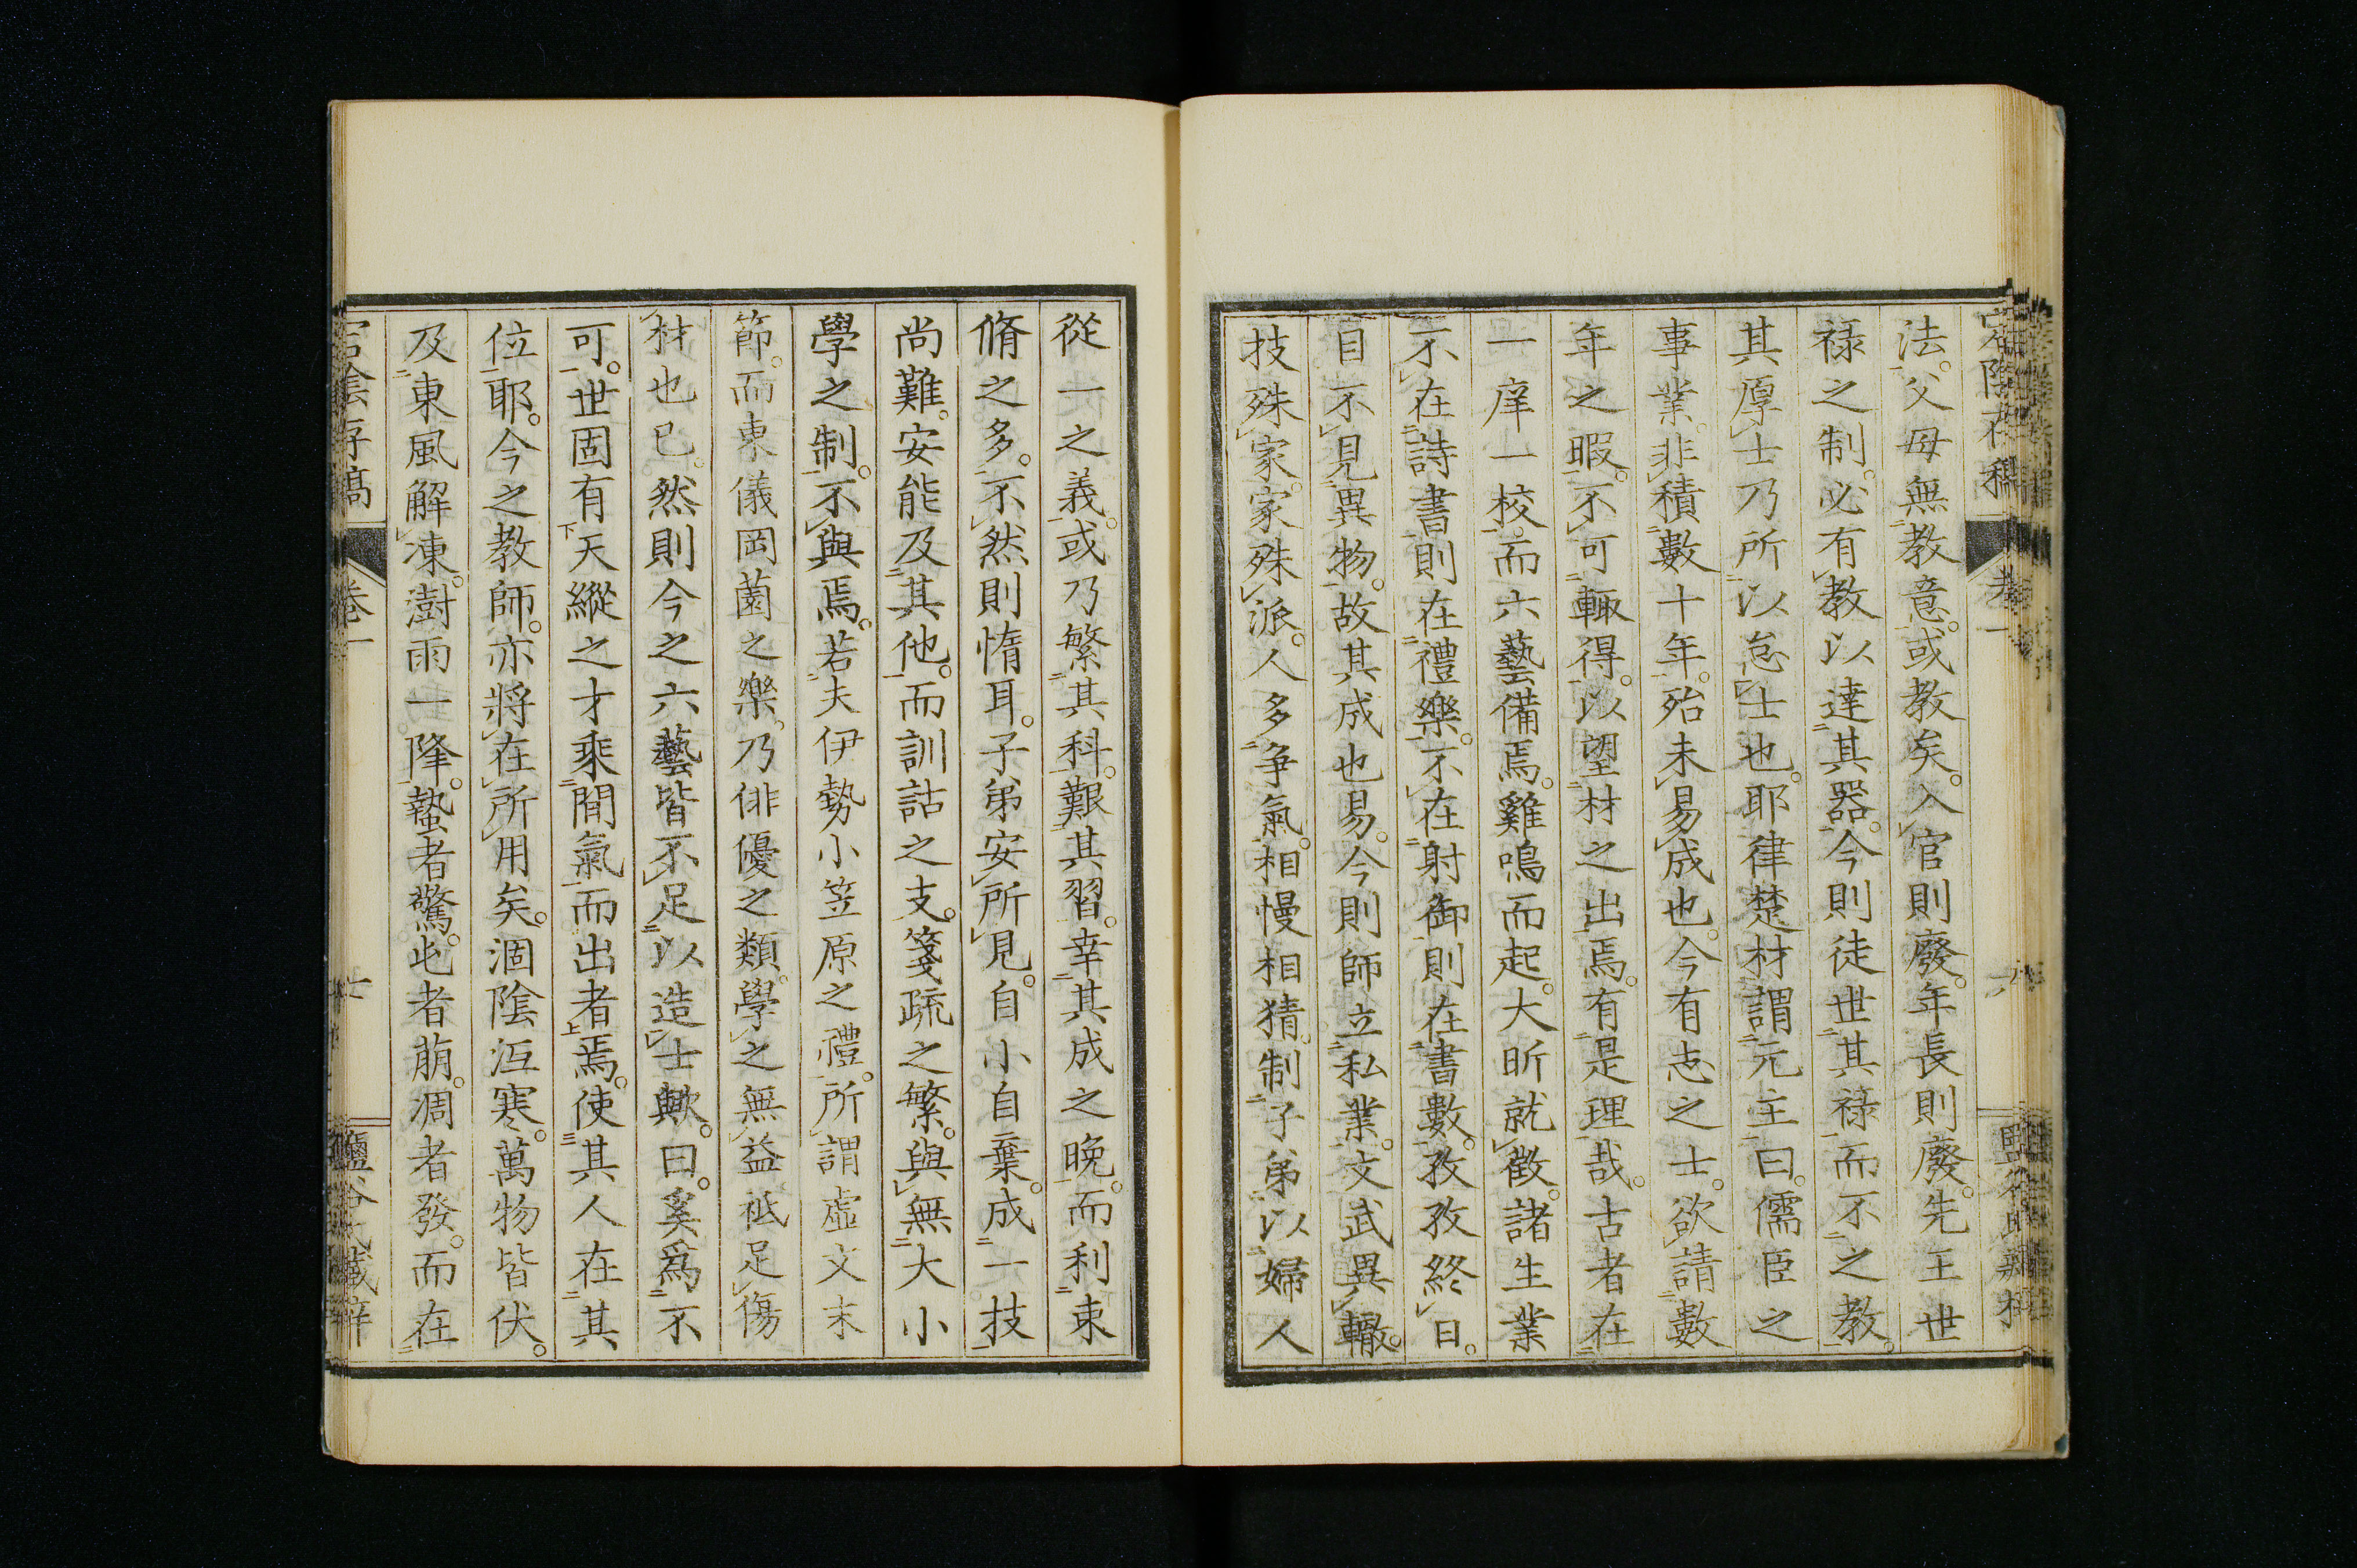 法。父母無教意。或教矣。入官則廢。年長則廢。先王世
祿之制。必有教以達其器。今則徒世其祿而不之教。
其厚士乃所以怠士也。耶律楚材謂元主曰。儒臣之
事業。非積數十年。殆未易成也。今有志之士。欲請數
年之暇。不可輙得。以望材之出焉。有是理哉。古者在
一庠一校。而六藝備焉。雞鳴而起。大昕就徵。諸生業
不在詩書則在禮樂。不在射御則在書數。孜孜終日。
目不見異物。故其成也易。今則師立私業。文武異轍。
技殊家。家殊派。人多爭氣。相慢相猜。制子弟以婦人
從一之義。或乃繁其科。艱其習。幸其成之晚。而利束
脩之多。不然則惰耳。子弟安所見。自小自棄。成一技
尚難。安能及其他。而訓詁之支。箋疏之繁。與無大小
學之制。不與焉。若夫伊勢小笠原之禮。所謂虛文末
節。而東儀岡薗之樂。乃俳優之類。學之無益祇足傷
材也已。然則今之六藝皆不足以造士歟。曰。奚爲不
可。世固有天縱之才乘間氣而出者焉。使其人在其
位耶。今之教師。亦將在所用矣。涸陰沍寒。萬物皆伏。
及東風解凍。澍雨一降。蟄者驚。屯者萠。凋者發。而在
宕陰存稿
卷一